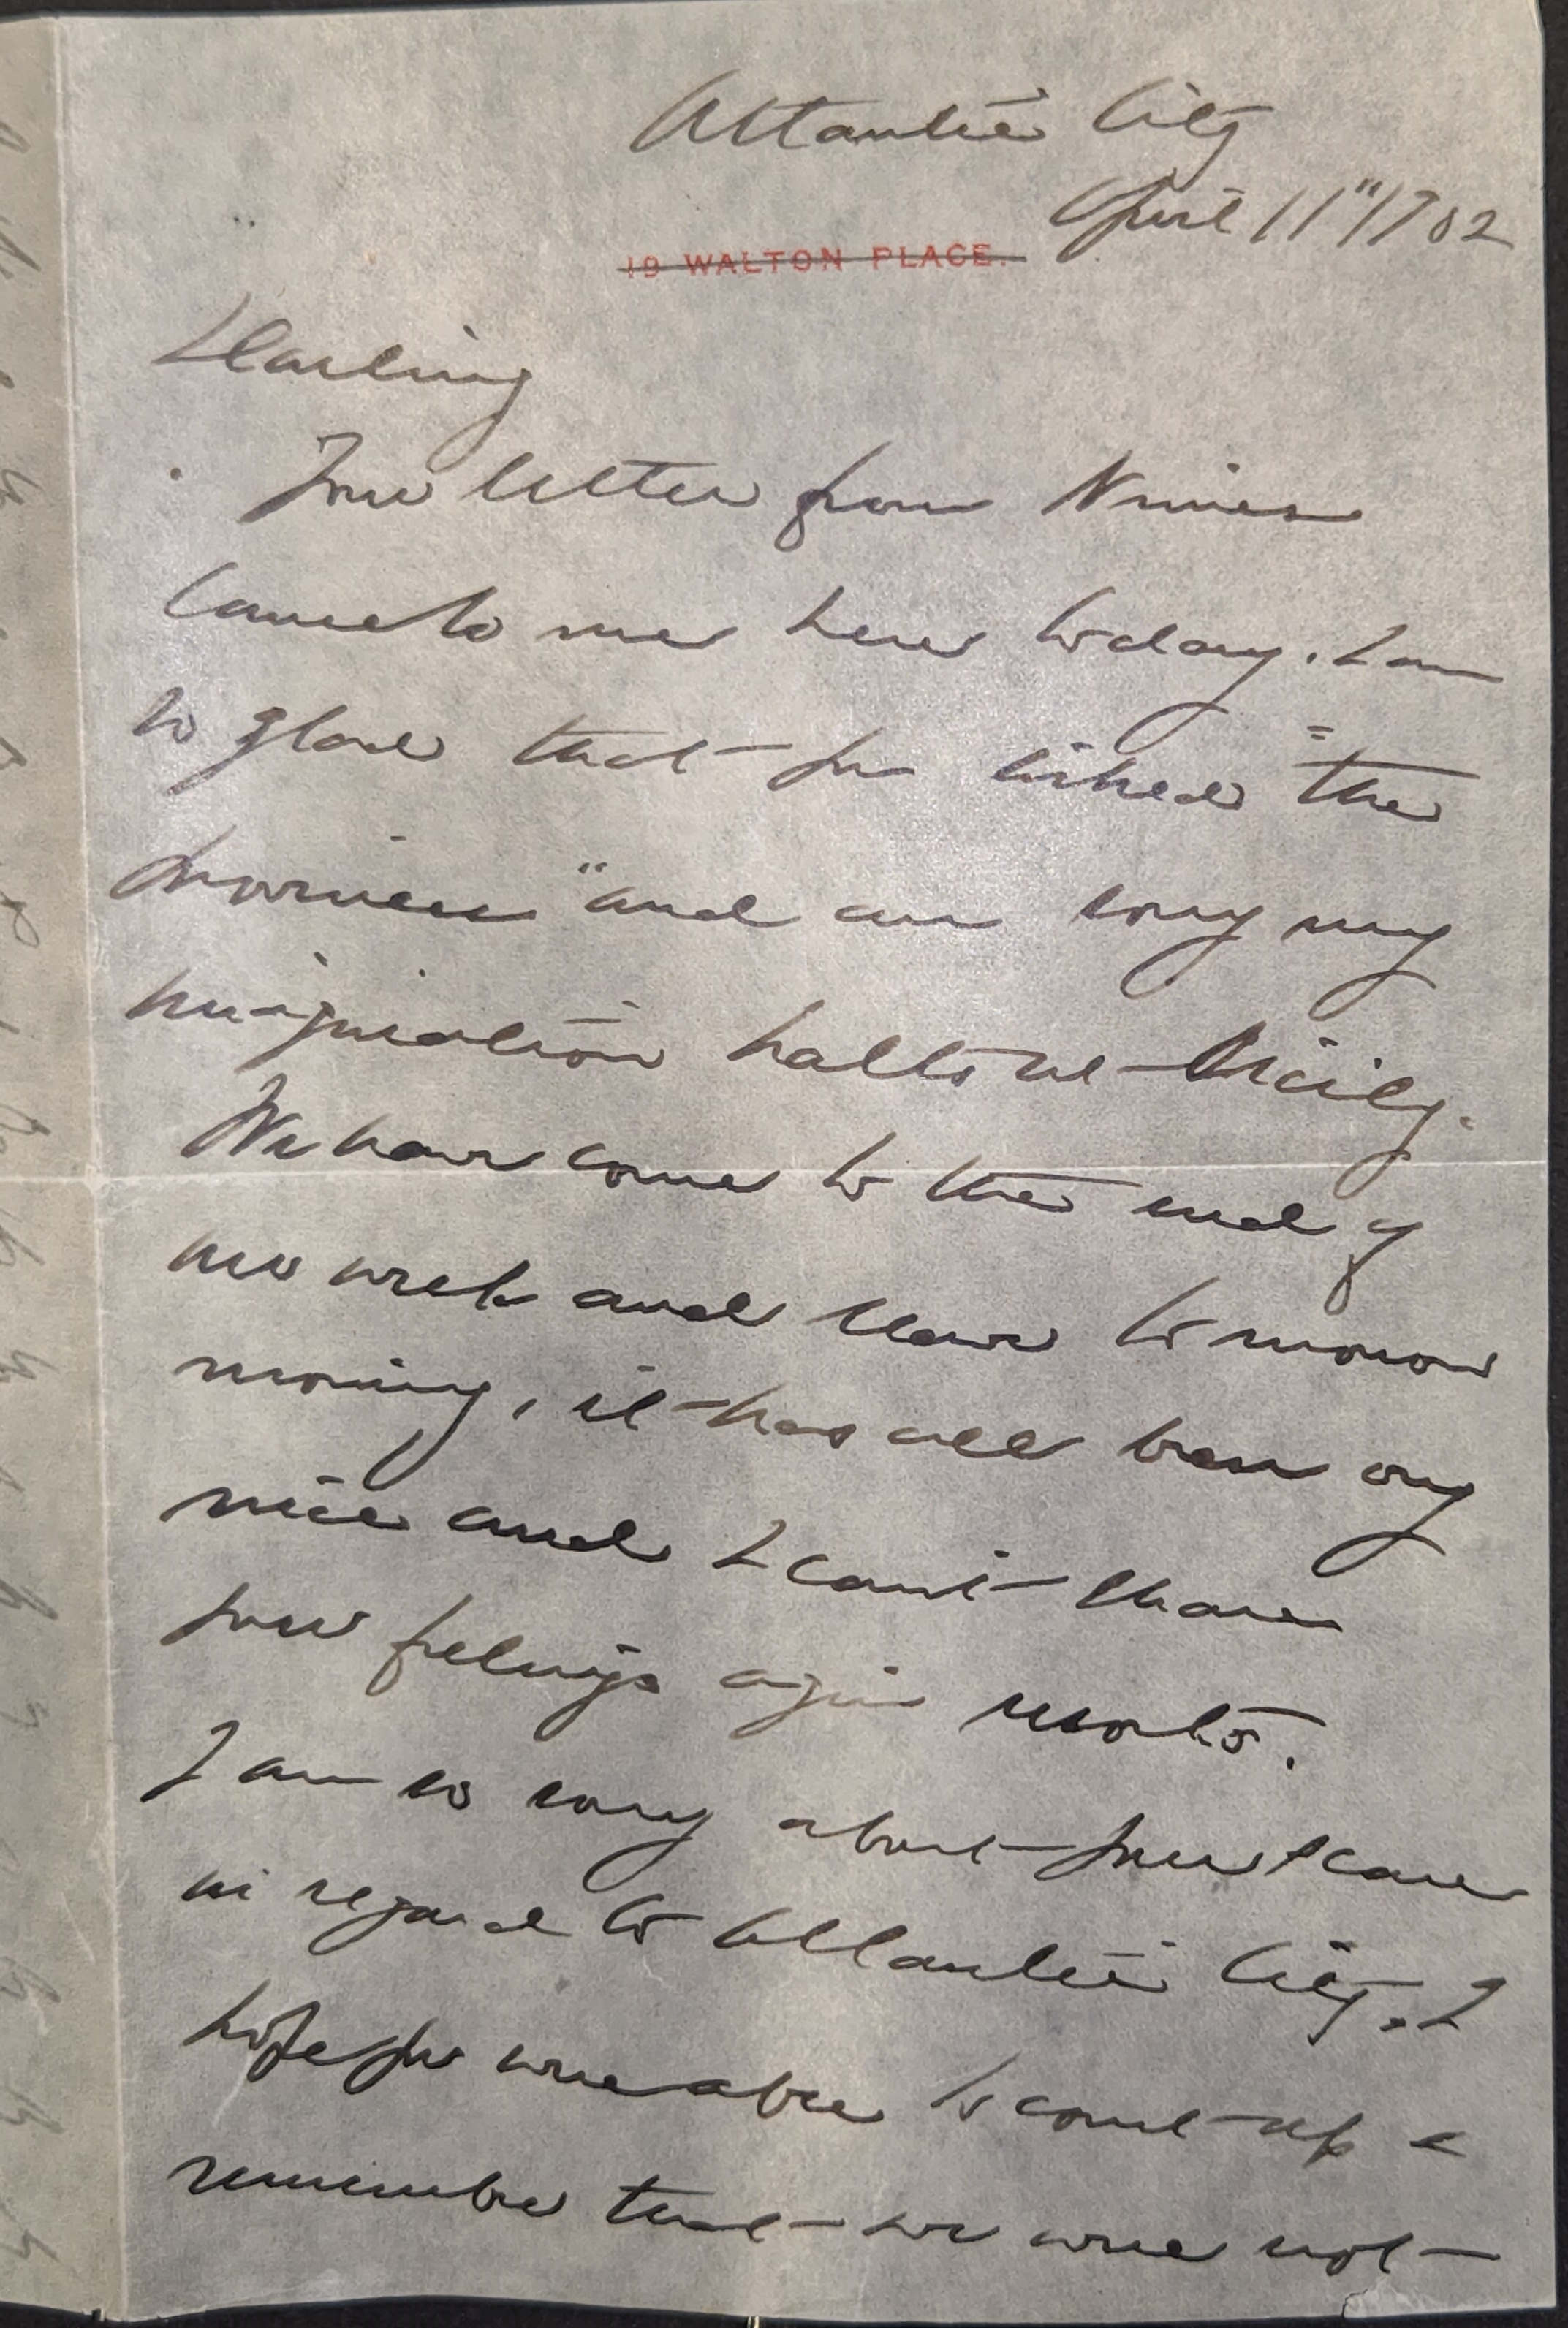 Atlantic City
April 11" 1902
19 WALTON PLACE.
Darling
Your letter from Nimes
came to me here today. I am
so glad that you liked "the
 " and am sorry my
imagination halts at Sicily.
We have come to the end of
our week and leave to morrow
morning, it has all been very
nice and I can't share
your feelings agin resorts.
I am so sorry about your scare
in regard to Atlantic City. I
hope you were able to count up &
remember that we were not